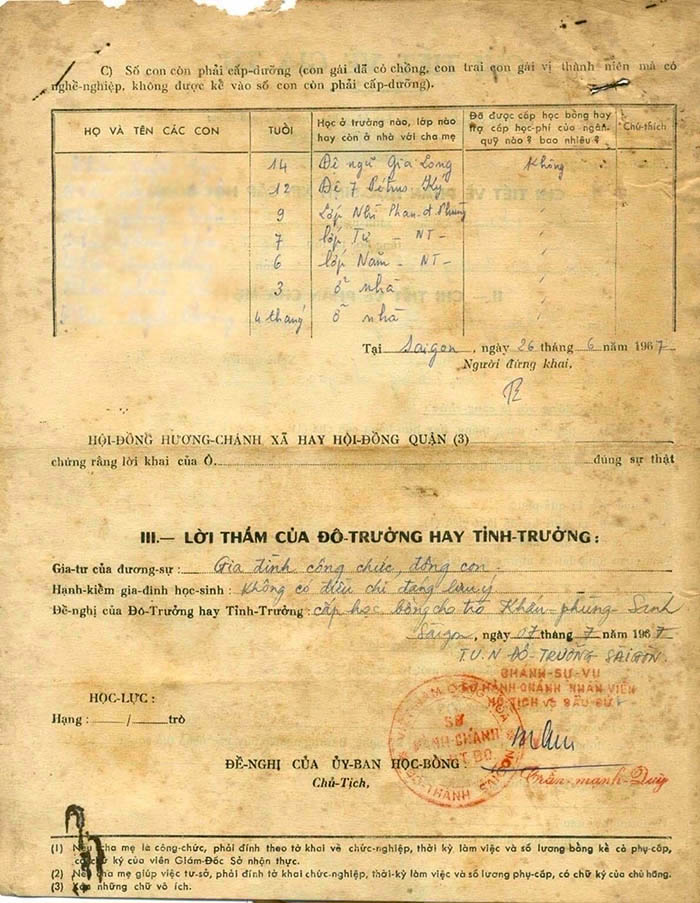 C) Số con còn phải cấp-dưỡng (con gái đã có chồng, con trai con gái vị thành niên mà có
nghề-nghiệp, không được kể vào số con còn phải cấp-dưỡng).
HỌ VÀ TÊN CÁC CON | TUỔI | Học ở trường nào, lớp nào hay còn ở nhà với cha mẹ | Đã được cấp học bổng hay trợ cấp học-phí của ngân quỹ nào ? bao nhiêu ? | Chú-thích
14 Đệ ngũ Gia Long không
12 Đệ 7 Pétrus Ký
9 Lớp Nhì Phan-đ-Phùng
7 lớp Tư - NT -
6 lớp Năm - NT -
3 ở nhà
4 tháng ở nhà
Tại Saigon, ngày 26 tháng 6 năm 1967
Người đứng khai,
HỘI-ĐỒNG HƯƠNG-CHÁNH XÃ HAY HỘI-ĐỒNG QUẬN (3)
chứng rằng lời khai của Ô. đúng sự thật
III.— LỜI THẨM CỦA ĐÔ-TRƯỞNG HAY TỈNH-TRƯỞNG :
Gia-tư của đương-sự : Gia đình công chức, đông con -
Hạnh-kiểm gia-đình học-sinh : Không có điều chi đáng lưu ý
Đề-nghị của Đô-Trưởng hay Tỉnh-Trưởng : cấp học bổng cho trò Khấu-phụng-Sinh
Saigon, ngày 07 tháng 7 năm 1967
T.U.N ĐÔ-TRƯỞNG SAIGON
CHÁNH-SỰ-VỤ
SỞ HÀNH-CHÁNH NHÂN VIÊN
HỘ TỊCH và BẦU CỬ
HỌC-LỰC :
Hạng : / trò
SỞ
HÀNH-CHÁNH
ĐỀ-NGHỊ CỦA ỦY-BAN HỌC-BỔNG :
Chủ-Tịch,
Trần-mạnh-Duy
(1) Nếu cha mẹ là công-chức, phải đính theo tờ khai về chức-nghiệp, thời kỳ làm việc và số lương bổng kể cả phụ-cấp,
có chữ ký của viên Giám-Đốc Sở nhận thực.
(2) Nếu cha mẹ giúp việc tư-sở, phải đính tờ khai chức-nghiệp, thời-kỳ làm việc và số lương phụ-cấp, có chữ ký của chủ hãng.
(3) Xóa những chữ vô ích.